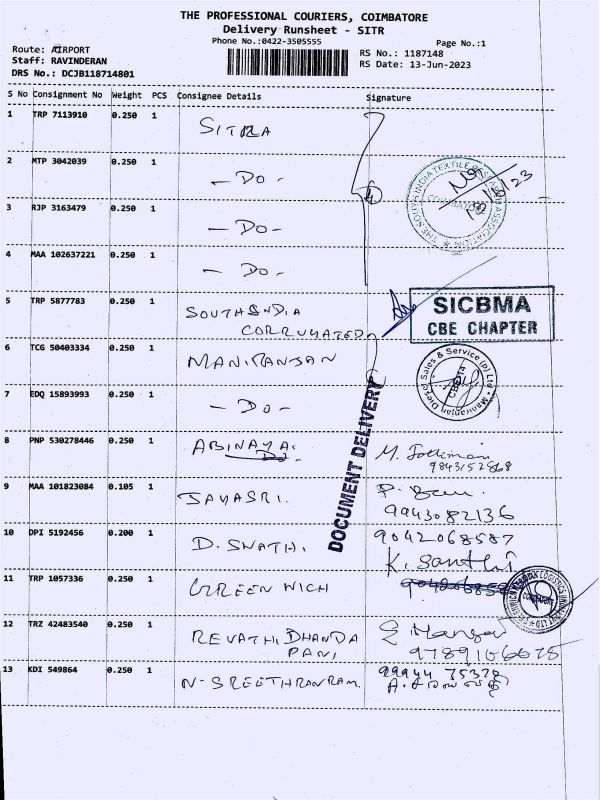 THE PROFESSIONAL COURIERS, COIMBATORE
Delivery Runsheet - SITR
Phone No.:0422-3505555
Page No.:1
Route: AIRPORT
Staff: RAVINDERAN
DRS No.: DCJB118714801
RS No.: 1187148
RS Date: 13-Jun-2023
S No Consignment No Weight PCS Consignee Details Signature
1 TRP 7113910 0.250 1 SITRA
2 MTP 3042039 0.250 1 - DO -
THE SOUTH INDIA TEXTILE RESEARCH ASSOCIATION
COIMBATORE
3 RJP 3163479 0.250 1 - DO -
4 MAA 102637221 0.250 1 - DO -
5 TRP 5877783 0.250 1 SOUTH INDIA
CORRUGATED
SICBMA
CBE CHAPTER
6 TCG 50403334 0.250 1 MANIRANJAN
Maniranjan Diesel Sales & Service (p) Ltd
CBE-14
7 EDQ 15893993 0.250 1 - DO -
DOCUMENT DELIVERY
8 PNP 530278446 0.250 1 ABINAYA.
9843152868
9 MAA 101823084 0.105 1 JAYASRI.
9943082136
10 DPI 5192456 0.200 1 D. SWATHI. 9042068587
K. Santhi
11 TRP 1057336 0.250 1 GREENWICH
12 TRZ 42483540 0.250 1 REVATHI DHANDA
PANI,
9789166675
13 KDI 549864 0.250 1 N. SREETHRANRAM
99944 75378